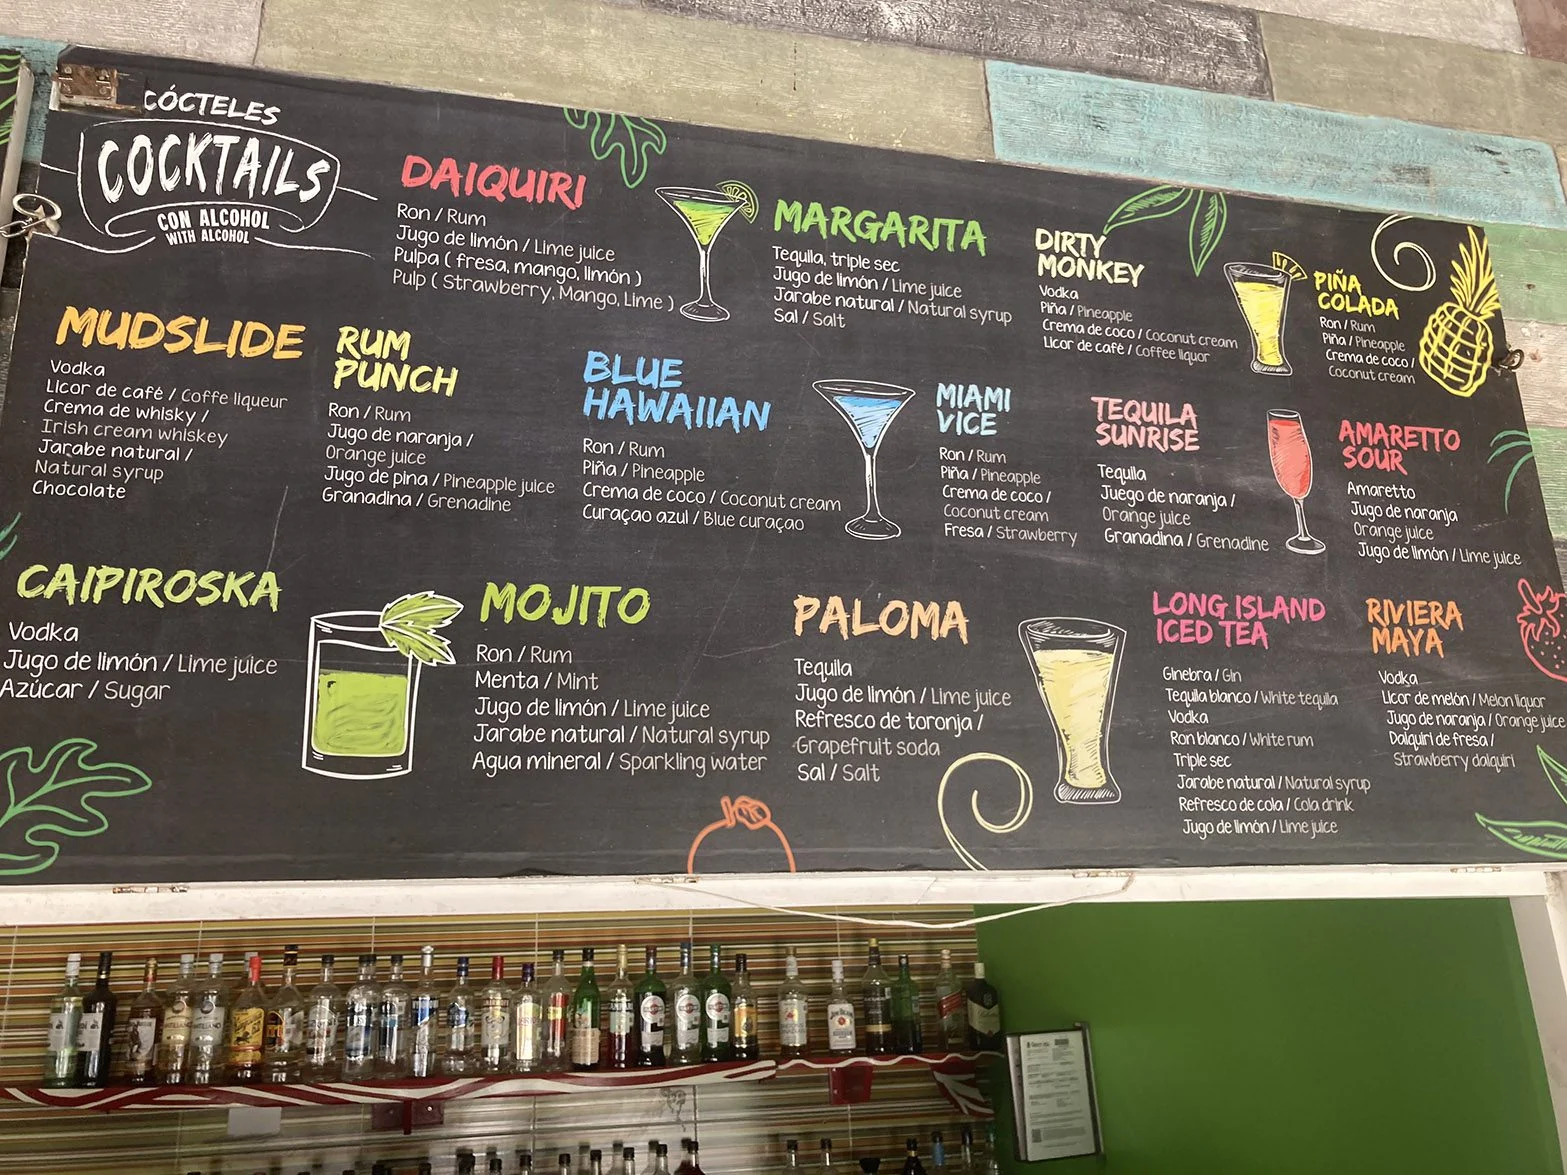 CÓCTELES
COCKTAILS
CON ALCOHOL
WITH ALCOHOL
DAIQUIRI
Ron / Rum
Jugo de limón / Lime juice
Pulpa ( fresa, mango, limón )
Pulp ( Strawberry, Mango, Lime )
MARGARITA
Tequila, triple sec
Jugo de limón / Lime juice
Jarabe natural / Natural syrup
Sal / Salt
DIRTY
MONKEY
Vodka
Piña / Pineapple
Crema de coco / Coconut cream
Licor de café / Coffee liquor
PIÑA
COLADA
Ron / Rum
Piña / Pineapple
Crema de coco /
Coconut cream
MUDSLIDE
Vodka
Licor de café / Coffe liqueur
Crema de whisky /
Irish cream whiskey
Jarabe natural /
Natural syrup
Chocolate
RUM
PUNCH
Ron / Rum
Jugo de naranja /
Orange juice
Jugo de pina / Pineapple juice
Granadina / Grenadine
BLUE
HAWAIIAN
Ron / Rum
Piña / Pineapple
Crema de coco / Coconut cream
Curaçao azul / Blue curaçao
MIAMI
VICE
Ron / Rum
Piña / Pineapple
Crema de coco /
Coconut cream
Fresa / Strawberry
TEQUILA
SUNRISE
Tequila
Juego de naranja /
Orange juice
Granadina / Grenadine
AMARETTO
SOUR
Amaretto
Jugo de naranja
Orange juice
Jugo de limón / Lime juice
CAIPIROSKA
Vodka
Jugo de limón / Lime juice
Azúcar / Sugar
MOJITO
Ron / Rum
Menta / Mint
Jugo de limón / Lime juice
Jarabe natural / Natural syrup
Agua mineral / Sparkling water
PALOMA
Tequila
Jugo de limón / Lime juice
Refresco de toronja /
Grapefruit soda
Sal / Salt
LONG ISLAND
ICED TEA
Ginebra / Gin
Tequila blanco / White tequila
Vodka
Ron blanco / White rum
Triple sec
Jarabe natural / Natural syrup
Refresco de cola / Cola drink
Jugo de limón / Lime juice
RIVIERA
MAYA
Vodka
Licor de melón / Melon liquor
Jugo de naranja / Orange juice
Daiquiri de fresa /
Strawberry daiquiri